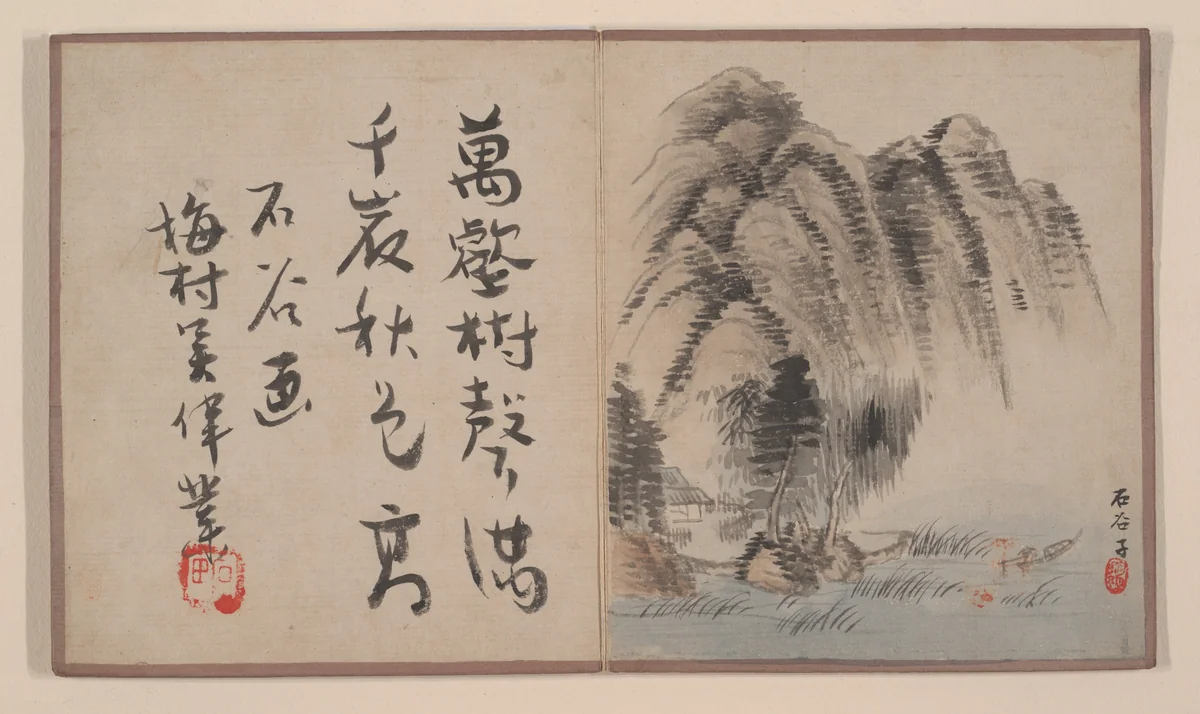 萬壑樹聲満
千巖秋色高
石谷画
梅村吴偉業
石谷子